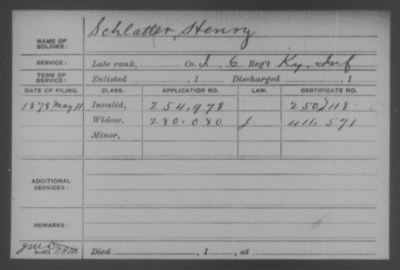 NAME OF SOLDIER: Schlatter, Henry
SERVICE: Late rank, Co. I, 6 Reg't Ky. Inf
TERM OF SERVICE: Enlisted , 1 Discharged , 1
DATE OF FILING. CLASS. APPLICATION NO. LAW. CERTIFICATE NO.
1878 May 11 Invalid, 254,978 250,118
Widow, 280.080 411,571
Minor,
ADDITIONAL SERVICES:
REMARKS:
Died , 1 , at